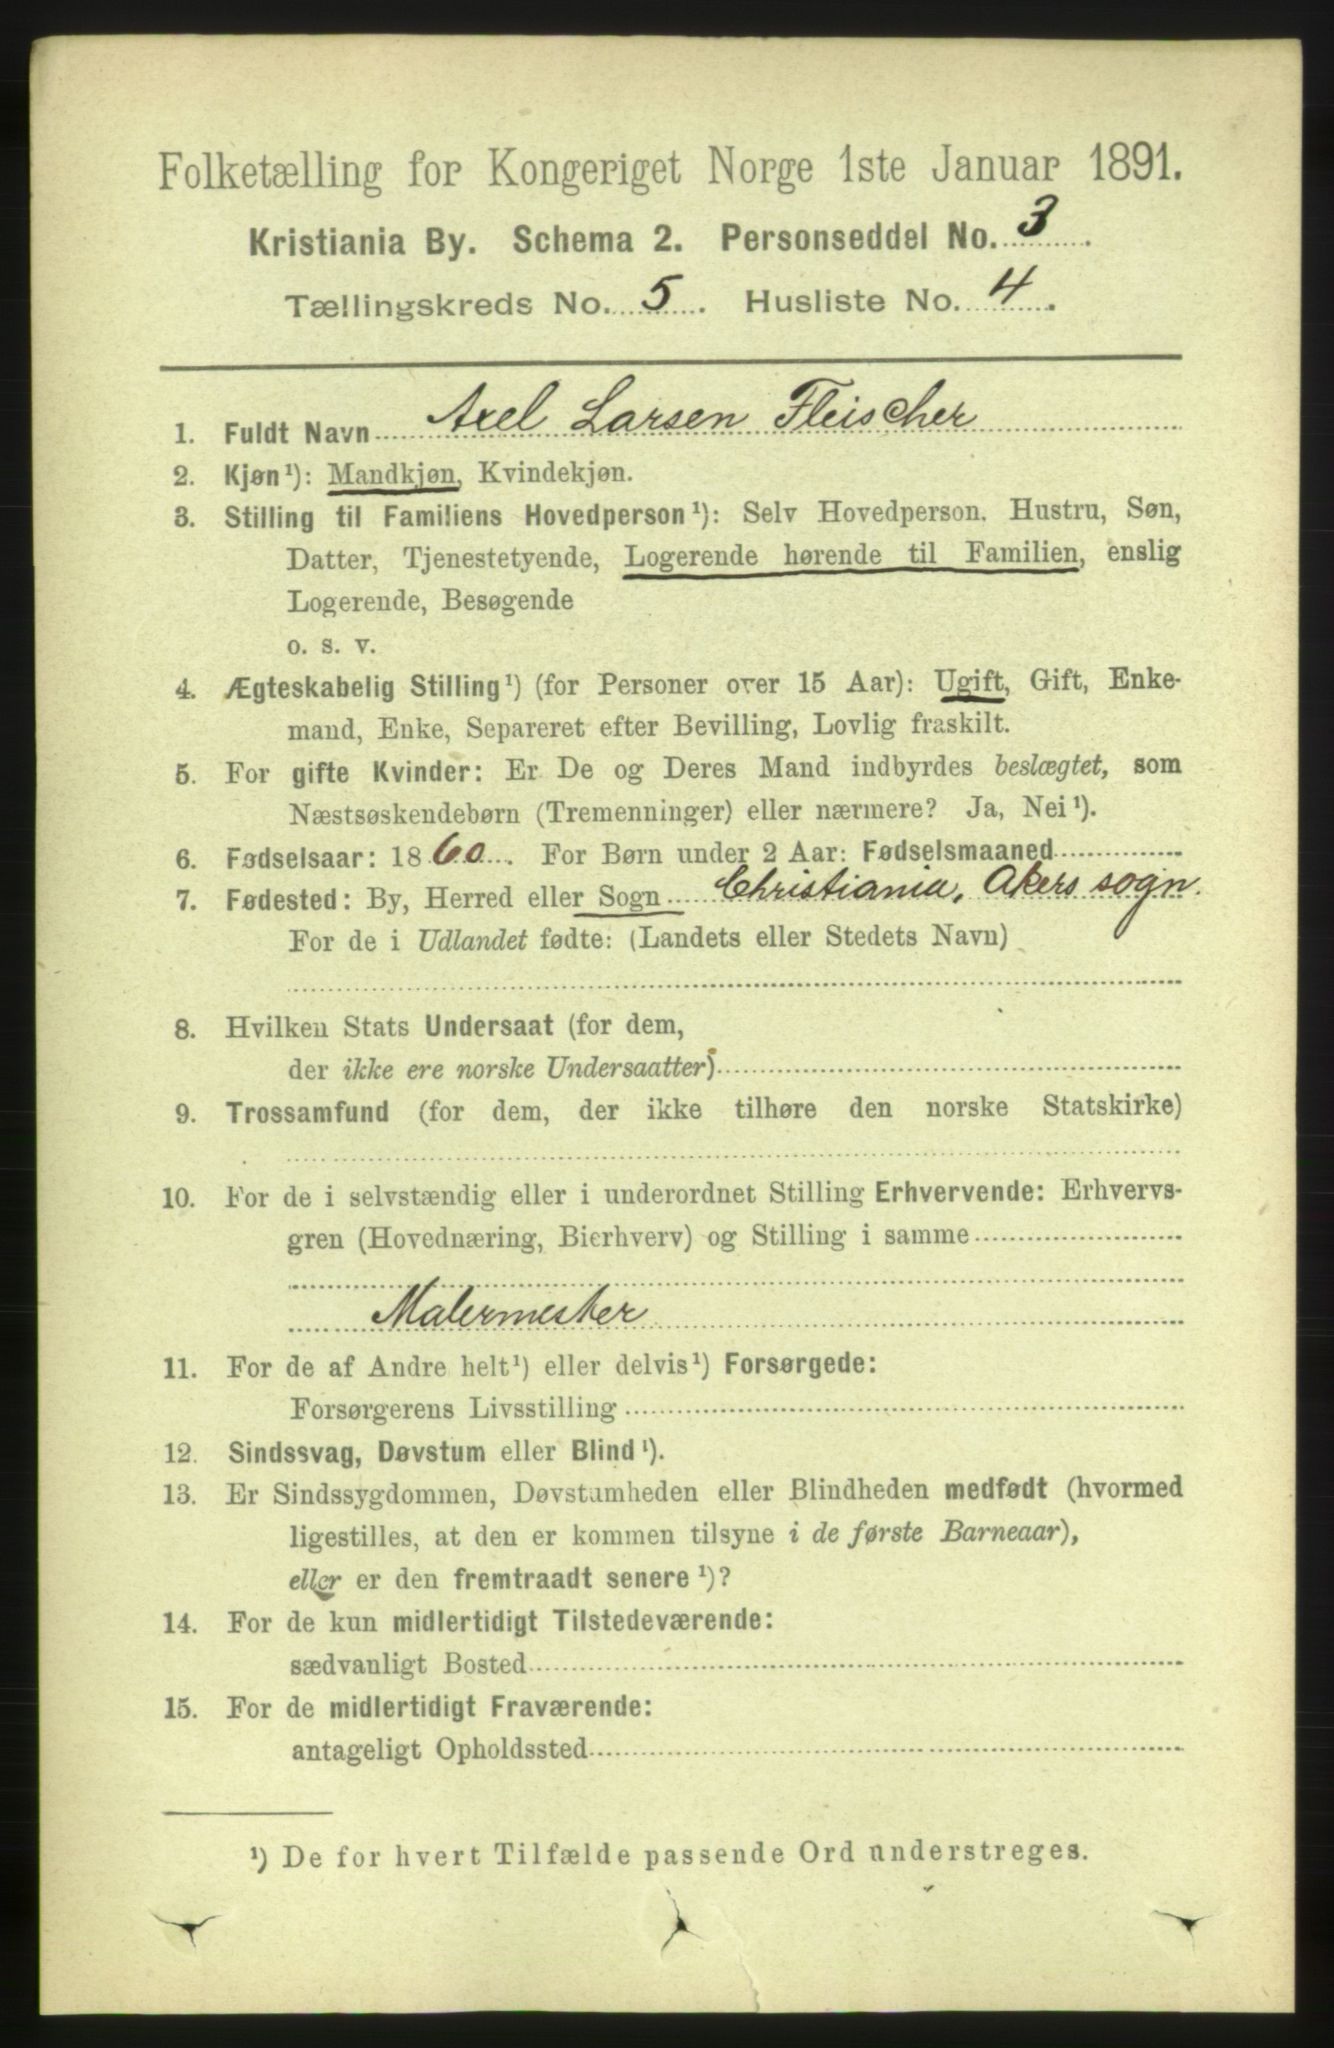 Folketælling for Kongeriget Norge 1ste Januar 1891.
Kristiania By. Schema 2. Personseddel No. 3
Tællingskreds No. 5. Husliste No. 4.
1. Fuldt Navn Axel Larsen Fleischer
2. Kjøn¹): Mandkjøn, Kvindekjøn.
3. Stilling til Familiens Hovedperson¹): Selv Hovedperson. Hustru, Søn,
Datter, Tjenestetyende, Logerende hørende til Familien, enslig
Logerende, Besøgende
o. s. v.
4. Ægteskabelig Stilling¹) (for Personer over 15 Aar): Ugift, Gift, Enke-
mand, Enke, Separeret efter Bevilling, Lovlig fraskilt.
5. For gifte Kvinder: Er De og Deres Mand indbyrdes beslægtet, som
Næstsøskendebørn (Tremenninger) eller nærmere? Ja, Nei¹).
6. Fødselsaar: 1860. For Børn under 2 Aar: Fødselsmaaned
7. Fødested: By, Herred eller Sogn Christiania, Akers sogn.
For de i Udlandet fødte: (Landets eller Stedets Navn)
8. Hvilken Stats Undersaat (for dem,
der ikke ere norske Undersaatter)
9. Trossamfund (for dem, der ikke tilhøre den norske Statskirke)
10. For de i selvstændig eller i underordnet Stilling Erhvervende: Erhvervs-
gren (Hovednæring, Bierhverv) og Stilling i samme
Malermester
11. For de af Andre helt¹) eller delvis¹) Forsørgede:
Forsørgerens Livsstilling
12. Sindssvag, Døvstum eller Blind¹).
13. Er Sindssygdommen, Døvstumheden eller Blindheden medfødt (hvormed
ligestilles, at den er kommen tilsyne i de første Barneaar),
eller er den fremtraadt senere¹)?
14. For de kun midlertidigt Tilstedeværende:
sædvanligt Bosted
15. For de midlertidigt Fraværende:
antageligt Opholdssted
¹) De for hvert Tilfælde passende Ord understreges.